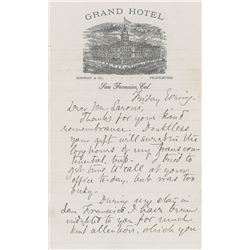 GRAND HOTEL
JOHNSON & CO., PROPRIETORS.
San Francisco, Cal.
Friday Evening.
Dear Mr.
Thanks for your kind
remembrance. Doubtless
your gift will surprise the
long hours of my trans con-
tinental trip. I tried to
get time to call at your
office to-day, but was too
busy.
During my stay in
San Francisco I have been
indebted to you for much
kind attention, which you